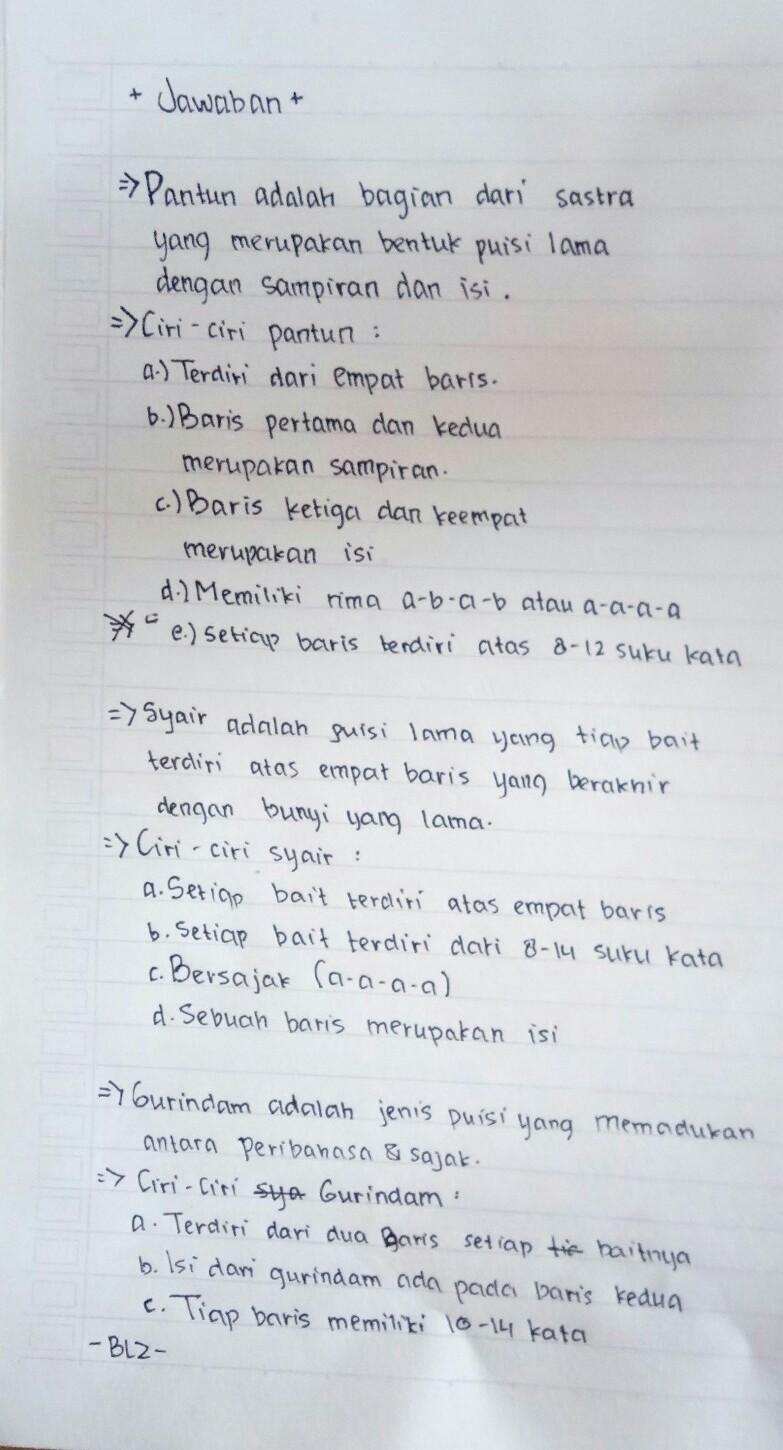 + Jawaban +
=> Pantun adalah bagian dari sastra
yang merupakan bentuk puisi lama
dengan sampiran dan isi.
=> Ciri-ciri pantun :
a.) Terdiri dari empat baris.
b.) Baris pertama dan kedua
merupakan sampiran.
c.) Baris ketiga dan keempat
merupakan isi
d.) Memiliki rima a-b-a-b atau a-a-a-a
e.) Setiap baris terdiri atas 8-12 suku kata
=> Syair adalah puisi lama yang tiap bait
terdiri atas empat baris yang berakhir
dengan bunyi yang lama.
=> Ciri-ciri syair :
a. Setiap bait terdiri atas empat baris
b. Setiap bait terdiri dari 8-14 suku kata
c. Bersajak (a-a-a-a)
d. Sebuah baris merupakan isi
=> Gurindam adalah jenis puisi yang memadukan
antara peribahasa & sajak.
=> Ciri-ciri sya Gurindam :
a. Terdiri dari dua Baris setiap tia baitnya
b. Isi dari gurindam ada pada baris kedua
c. Tiap baris memiliki 10-14 kata
-BLZ-